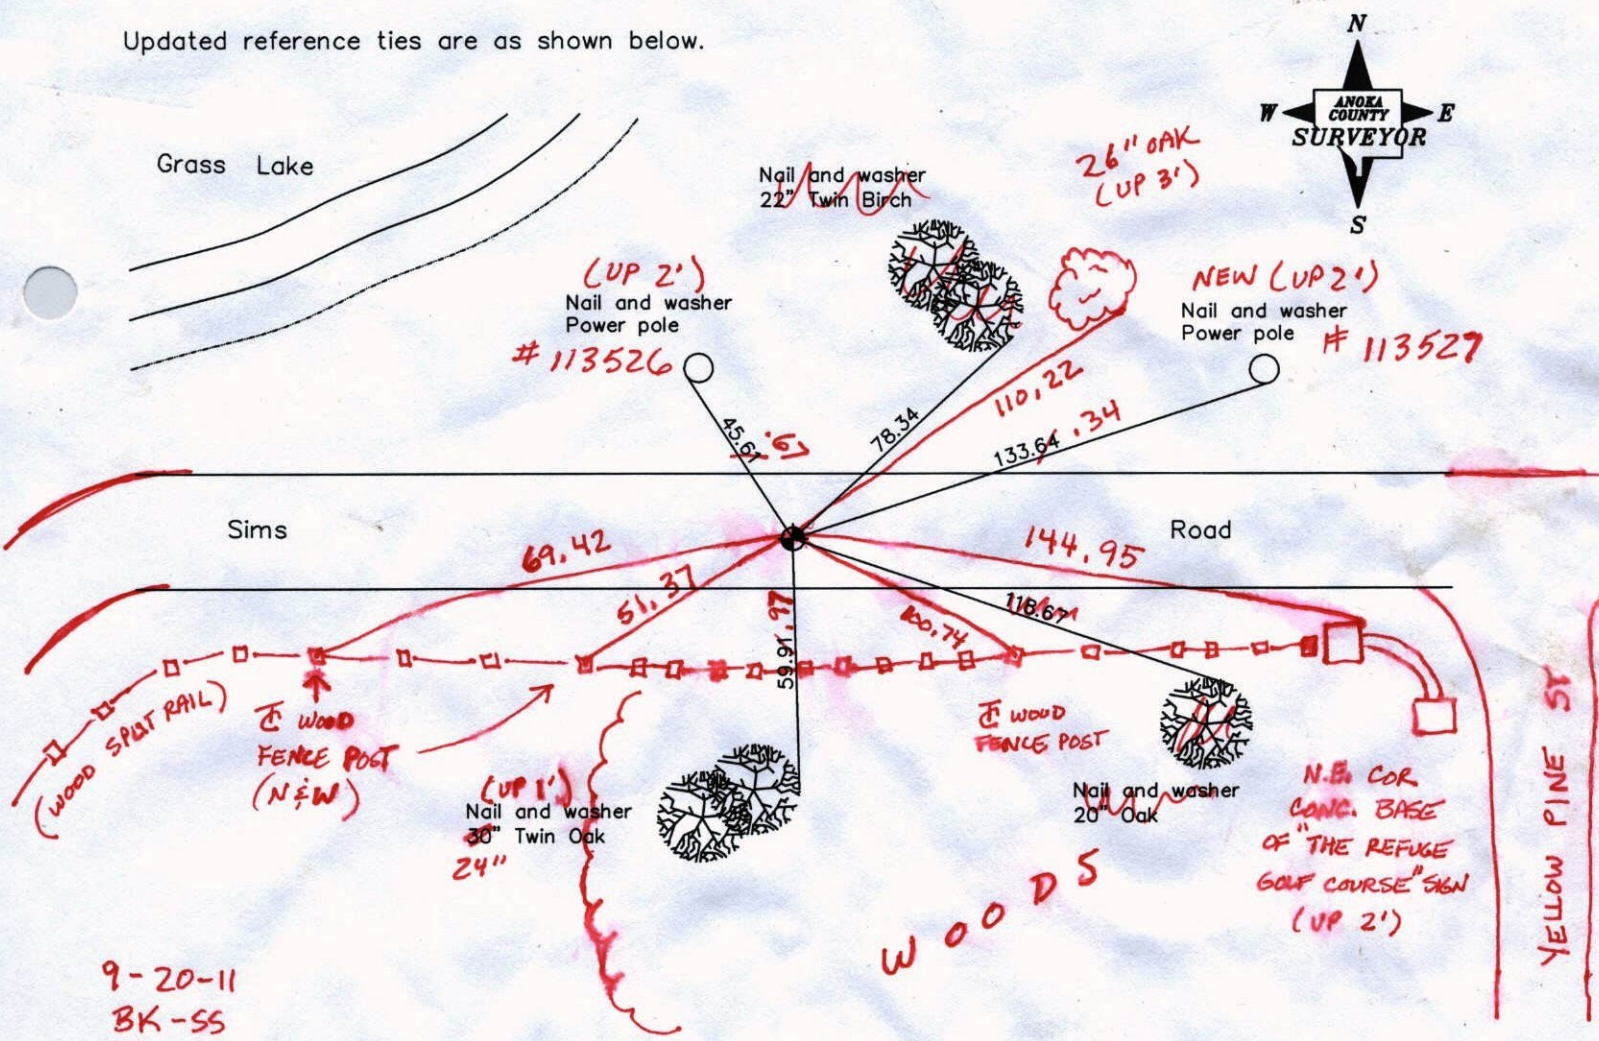 Updated reference ties are as shown below.
N
W
ANOKA
COUNTY
E
SURVEYOR
S
Grass Lake
Nail and washer
22" Twin Birch
26" OAK
(UP 3')
(UP 2')
Nail and washer
Power pole
# 113526
NEW (UP 2')
Nail and washer
Power pole
# 113527
45.61
.61
78.34
110.22
133.64
.34
Sims
Road
69.42
51.37
144.95
59.91
.97
100.74
118.67
(WOOD SPLIT RAIL)
WOOD
FENCE POST
(N & W)
WOOD
FENCE POST
(UP 1')
Nail and washer
30" Twin Oak
24"
Nail and washer
20" Oak
N.E. COR
CONC. BASE
OF "THE REFUGE
GOLF COURSE" SIGN
(UP 2')
YELLOW PINE ST
WOODS
9-20-11
BK-SS